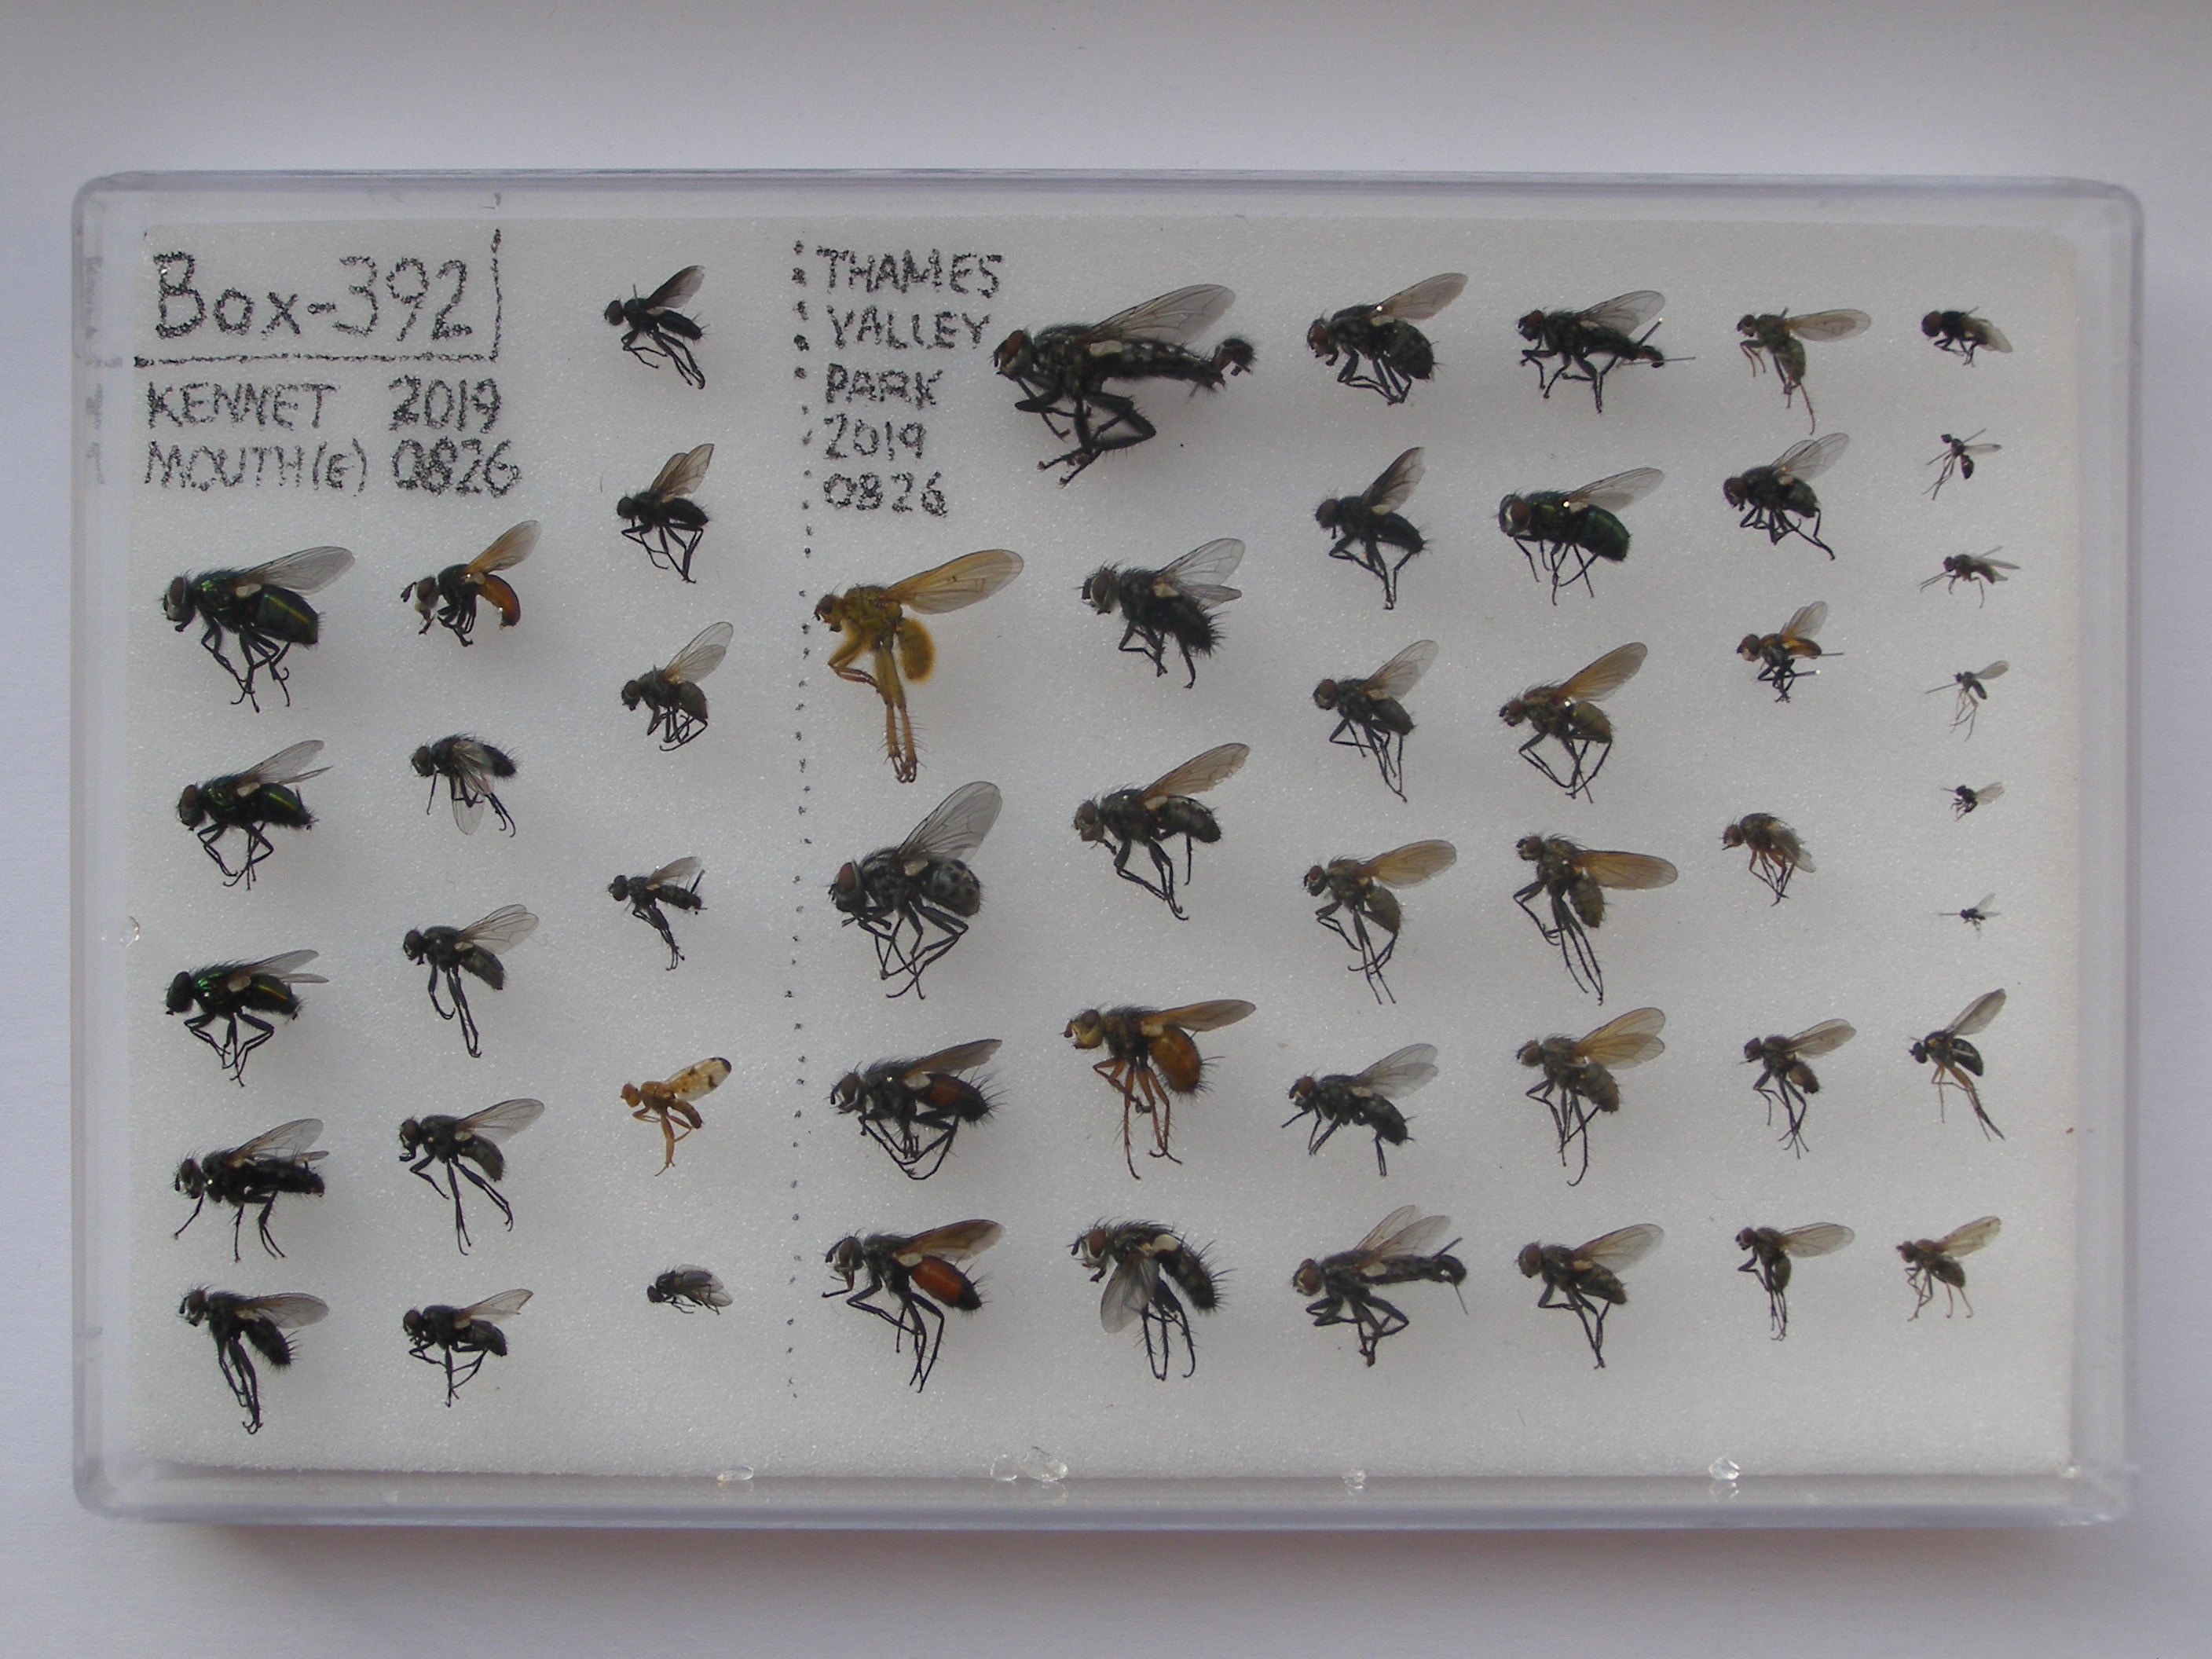 Box-392
KENNET 2019
MOUTH(E) 0826
THAMES
VALLEY
PARK
2019
0826